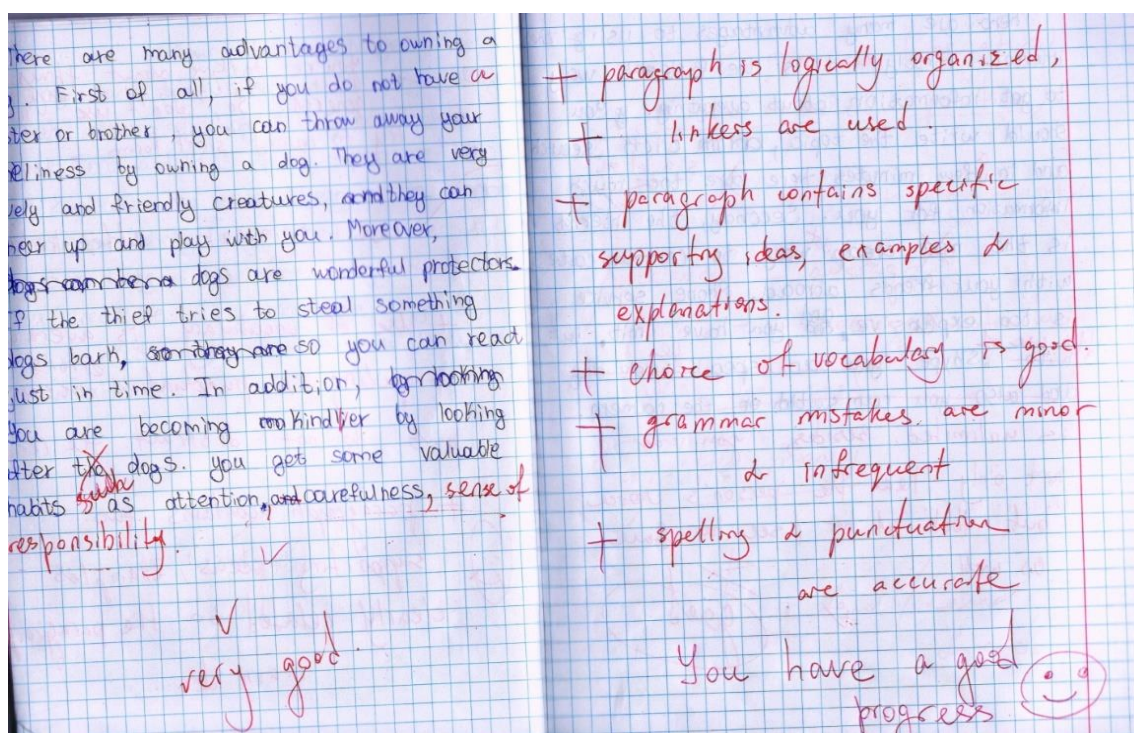 here are many advantages to owning a
. First of all, if you do not have a
ster or brother, you can throw away your
eliness by owning a dog. They are very
vely and friendly creatures, and they can
heer up and play with you. Moreover,
dogs are wonderful protectors.
If the thief tries to steal something
dogs bark, so you can read
just in time. In addition,
You are becoming kindlier by looking
after dogs. you get some valuable
habits such as attention, carefulness, sense of
responsibility.
very good.
+ paragraph is logically organized,
+ linkers are used.
+ paragraph contains specific
supporting ideas, examples &
explanations.
+ choice of vocabulary is good.
+ grammar mistakes are minor
& infrequent
+ spelling & punctuation
are accurate
You have a good
progress